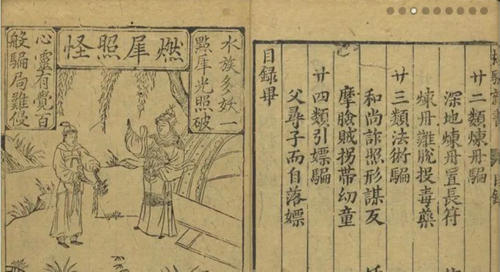 廿二類煉丹騙
深地煉丹置長符
煉丹難脫投毒藥
廿三類法術騙
和尚詐照形謀反
摩臉賊拐帶幼童
廿四類引嫖騙
父尋子而自落嫖
目錄畢
燃犀照怪
水族多妖一
點犀光照破
心靈有覺百
般騙局難侵